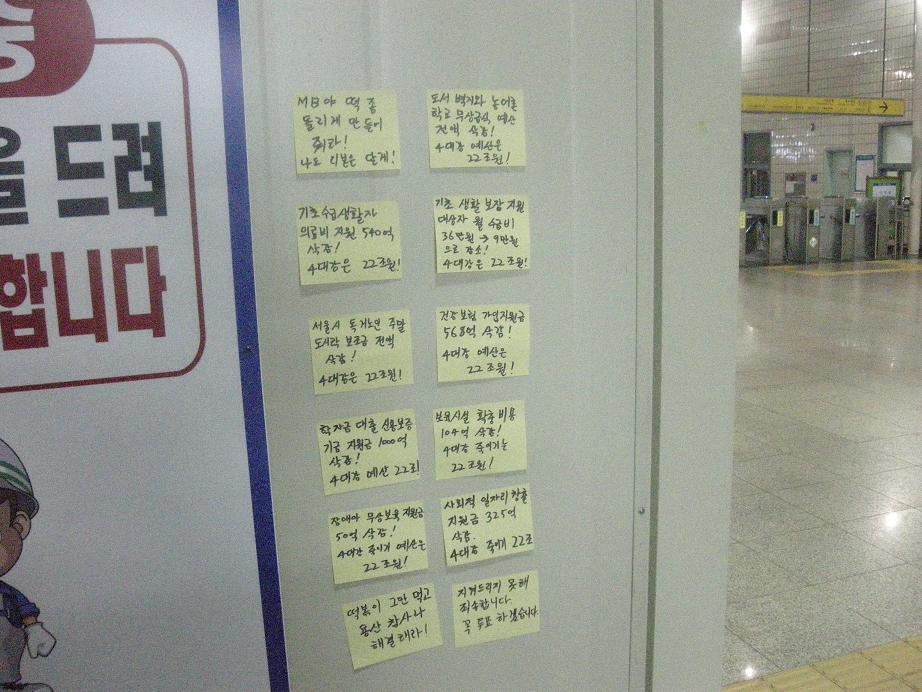 을 드려
합니다
MB야 떡 좀
돌리게 만들어
줘라!
도서 벽지와 농어촌
학교 무상급식 예산
전액 삭감!
4대강 예산은
22조원!
기초수급생활자
의료비 지원 540억
삭감!
4대강은 22조원!
기초 생활 보장 지원
대상자 월 수급비
36만원→9만원
으로 감소!
4대강은 22조원!
서울시 독거노인 주말
도시락 보조금 전액
삭감!
4대강은 22조원!
건강보험 가입지원금
568억 삭감!
4대강 예산은
22조원!
학자금 대출 신용보증
기금 지원금 1000억
삭감!
4대강 예산 22조!
보육시설 확충 비용
104억 삭감!
4대강 죽이기는
22조원!
장애아 무상보육 지원금
50억 삭감!
4대강 죽이기 예산은
22조원!
사회적 일자리 창출
지원금 325억
삭감.
4대강 죽이기 22조
떡볶이 그만 먹고
용산 참사나
해결해라!
지켜드리지 못해
죄송합니다.
꼭 투표 하겠습니다